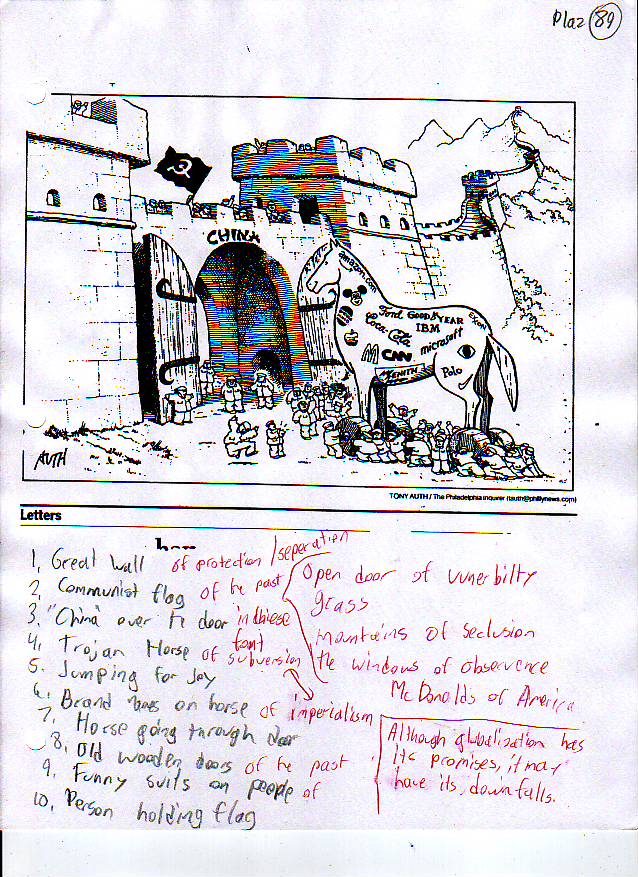 Plaz 89
CHINA
amazon.com
Ford GOODYEAR EXXON
Coca-Cola IBM
M CNN microsoft
ZENITH Polo
AUTH
TONY AUTH / The Philadelphia Inquirer (tauth@phillynews.com)
Letters
1, Great wall of protection / seperation
2, Communist flag of the past
3, "China" over the door in chinese font
4, Trojan Horse of subversion
5. Jumping for Joy
6, Brand names on horse of imperialism
7, Horse going through door
8, Old wooden doors of the past
9, Funny suits on people of
10, Person holding flag
Open door of vunerbilty
grass
mountains of seclusion
the windows of observence
McDonalds of America
Although globalization has
its promises, it may
have its, downfalls.